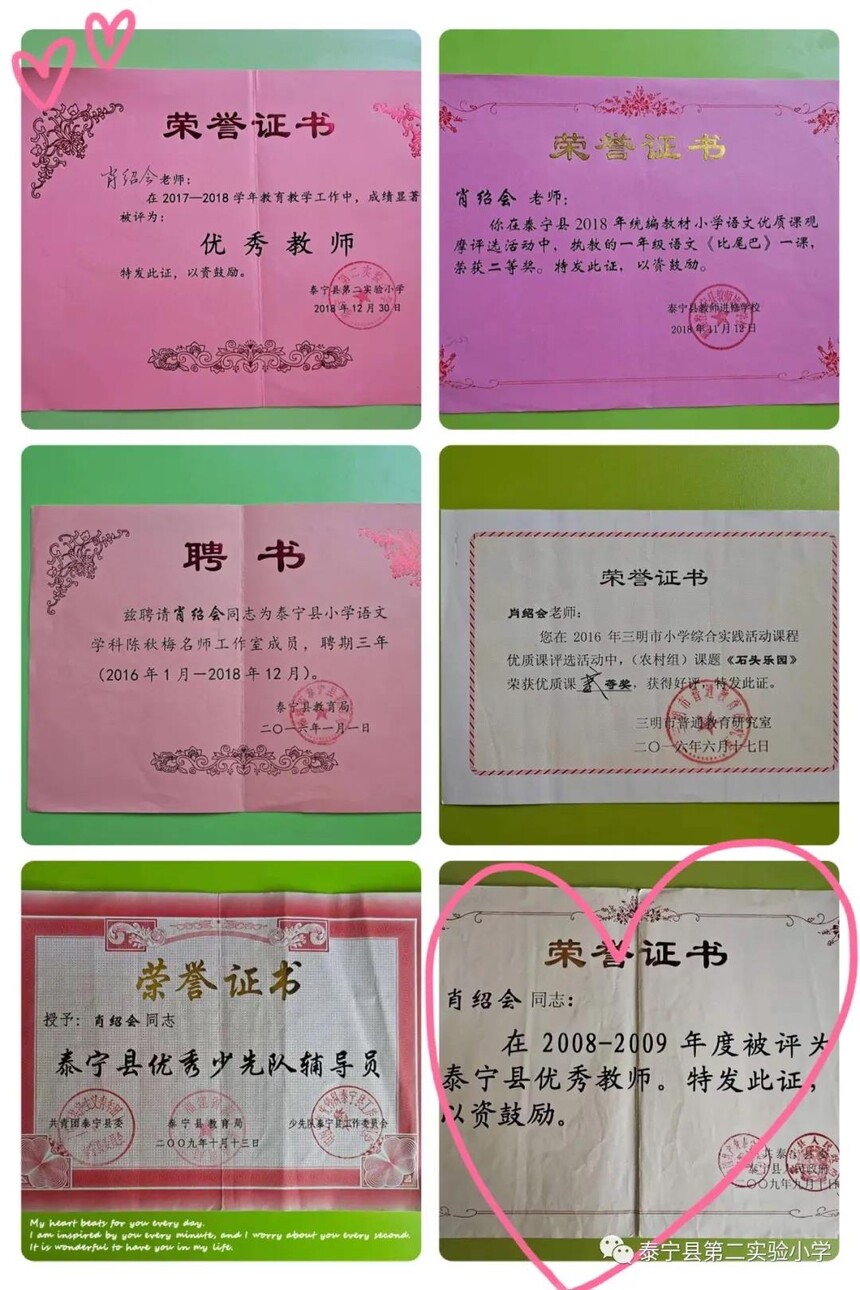 荣誉证书
肖绍会老师：
在2017—2018学年教育教学工作中，成绩显著
被评为：
优秀教师
特发此证，以资鼓励。
泰宁县第二实验小学
2018年12月30日
荣誉证书
肖绍会 老师：
你在泰宁县2018年统编教材小学语文优质课观
摩评选活动中，执教的一年级语文《比尾巴》一课，
荣获二等奖。特发此证，以资鼓励。
泰宁县教师进修学校
2018年11月12日
聘书
兹聘请肖绍会同志为泰宁县小学语文
学科陈秋梅名师工作室成员，聘期三年
（2016年1月—2018年12月）。
泰宁县教育局
二〇一六年一月一日
荣誉证书
肖绍会老师：
您在2016年三明市小学综合实践活动课程
优质课评选活动中，（农村组）课题《石头乐园》
荣获优质课贰等奖，获得好评，特发此证。
三明市普通教育研究室
二〇一六年六月十七日
荣誉证书
授予：肖绍会同志
泰宁县优秀少先队辅导员
共青团泰宁县委 泰宁县教育局 少先队泰宁县工作委员会
二〇〇九年十月十三日
荣誉证书
肖绍会 同志：
在2008-2009年度被评为
泰宁县优秀教师。特发此证，
以资鼓励。
共泰宁县委
泰宁县人民政府
二〇〇九年九月
My heart beats for you every day.
I am inspired by you every minute, and I worry about you every second.
It is wonderful to have you in my life.
泰宁县第二实验小学